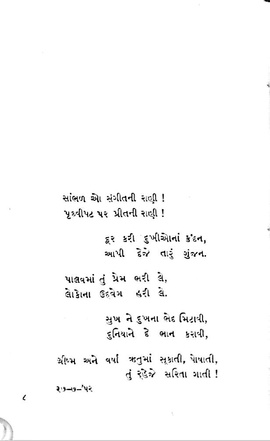 સાંભળ ઓ સંગીતની રાણી !
પૃથ્વીપટ પર પ્રીતની રાણી !
દૂર કરી દુખીઓનાં ક્રંદન,
આપી દેજે તારું ગુંજન.
પાલવમાં તું પ્રેમ ભરી લે,
લોકોના ઉદ્વેગ હરી લે.
સુખ ને દુખના ભેદ મિટાવી,
દુનિયાને દે ભાન કરાવી,
ગ્રીષ્મ અને વર્ષા ઋતુમાં સૂકાતી, પોષાતી,
તું રહેજે સરિતા ગાતી !
૨૭-૭-'૫૨
૮